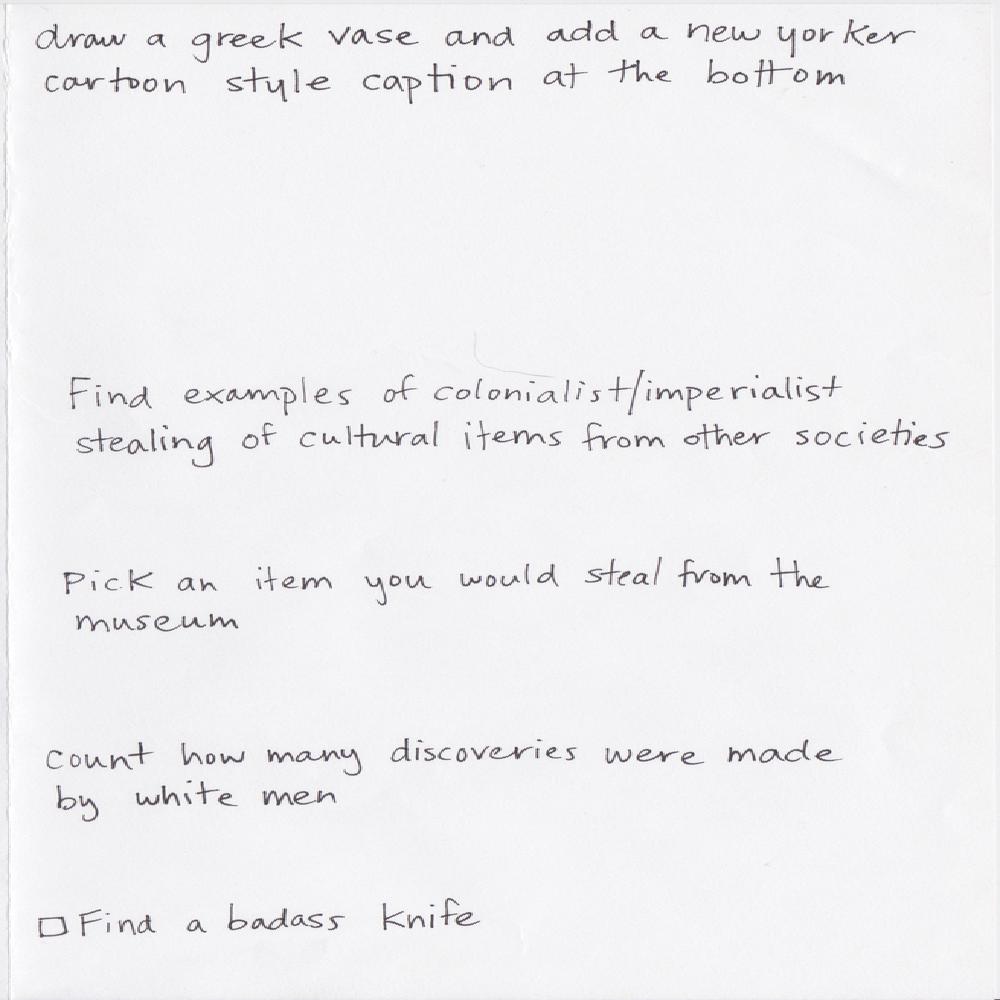 draw a greek vase and add a new yorker
cartoon style caption at the bottom
Find examples of colonialist/imperialist
stealing of cultural items from other societies
Pick an item you would steal from the
museum
count how many discoveries were made
by white men
Find a badass knife